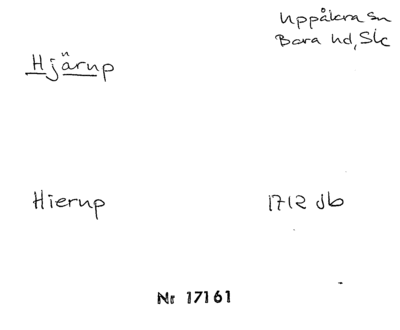 Uppåkra sn
Bara hd, Sk
Hjärup
Hierup 1712 Jb
Nr 17161